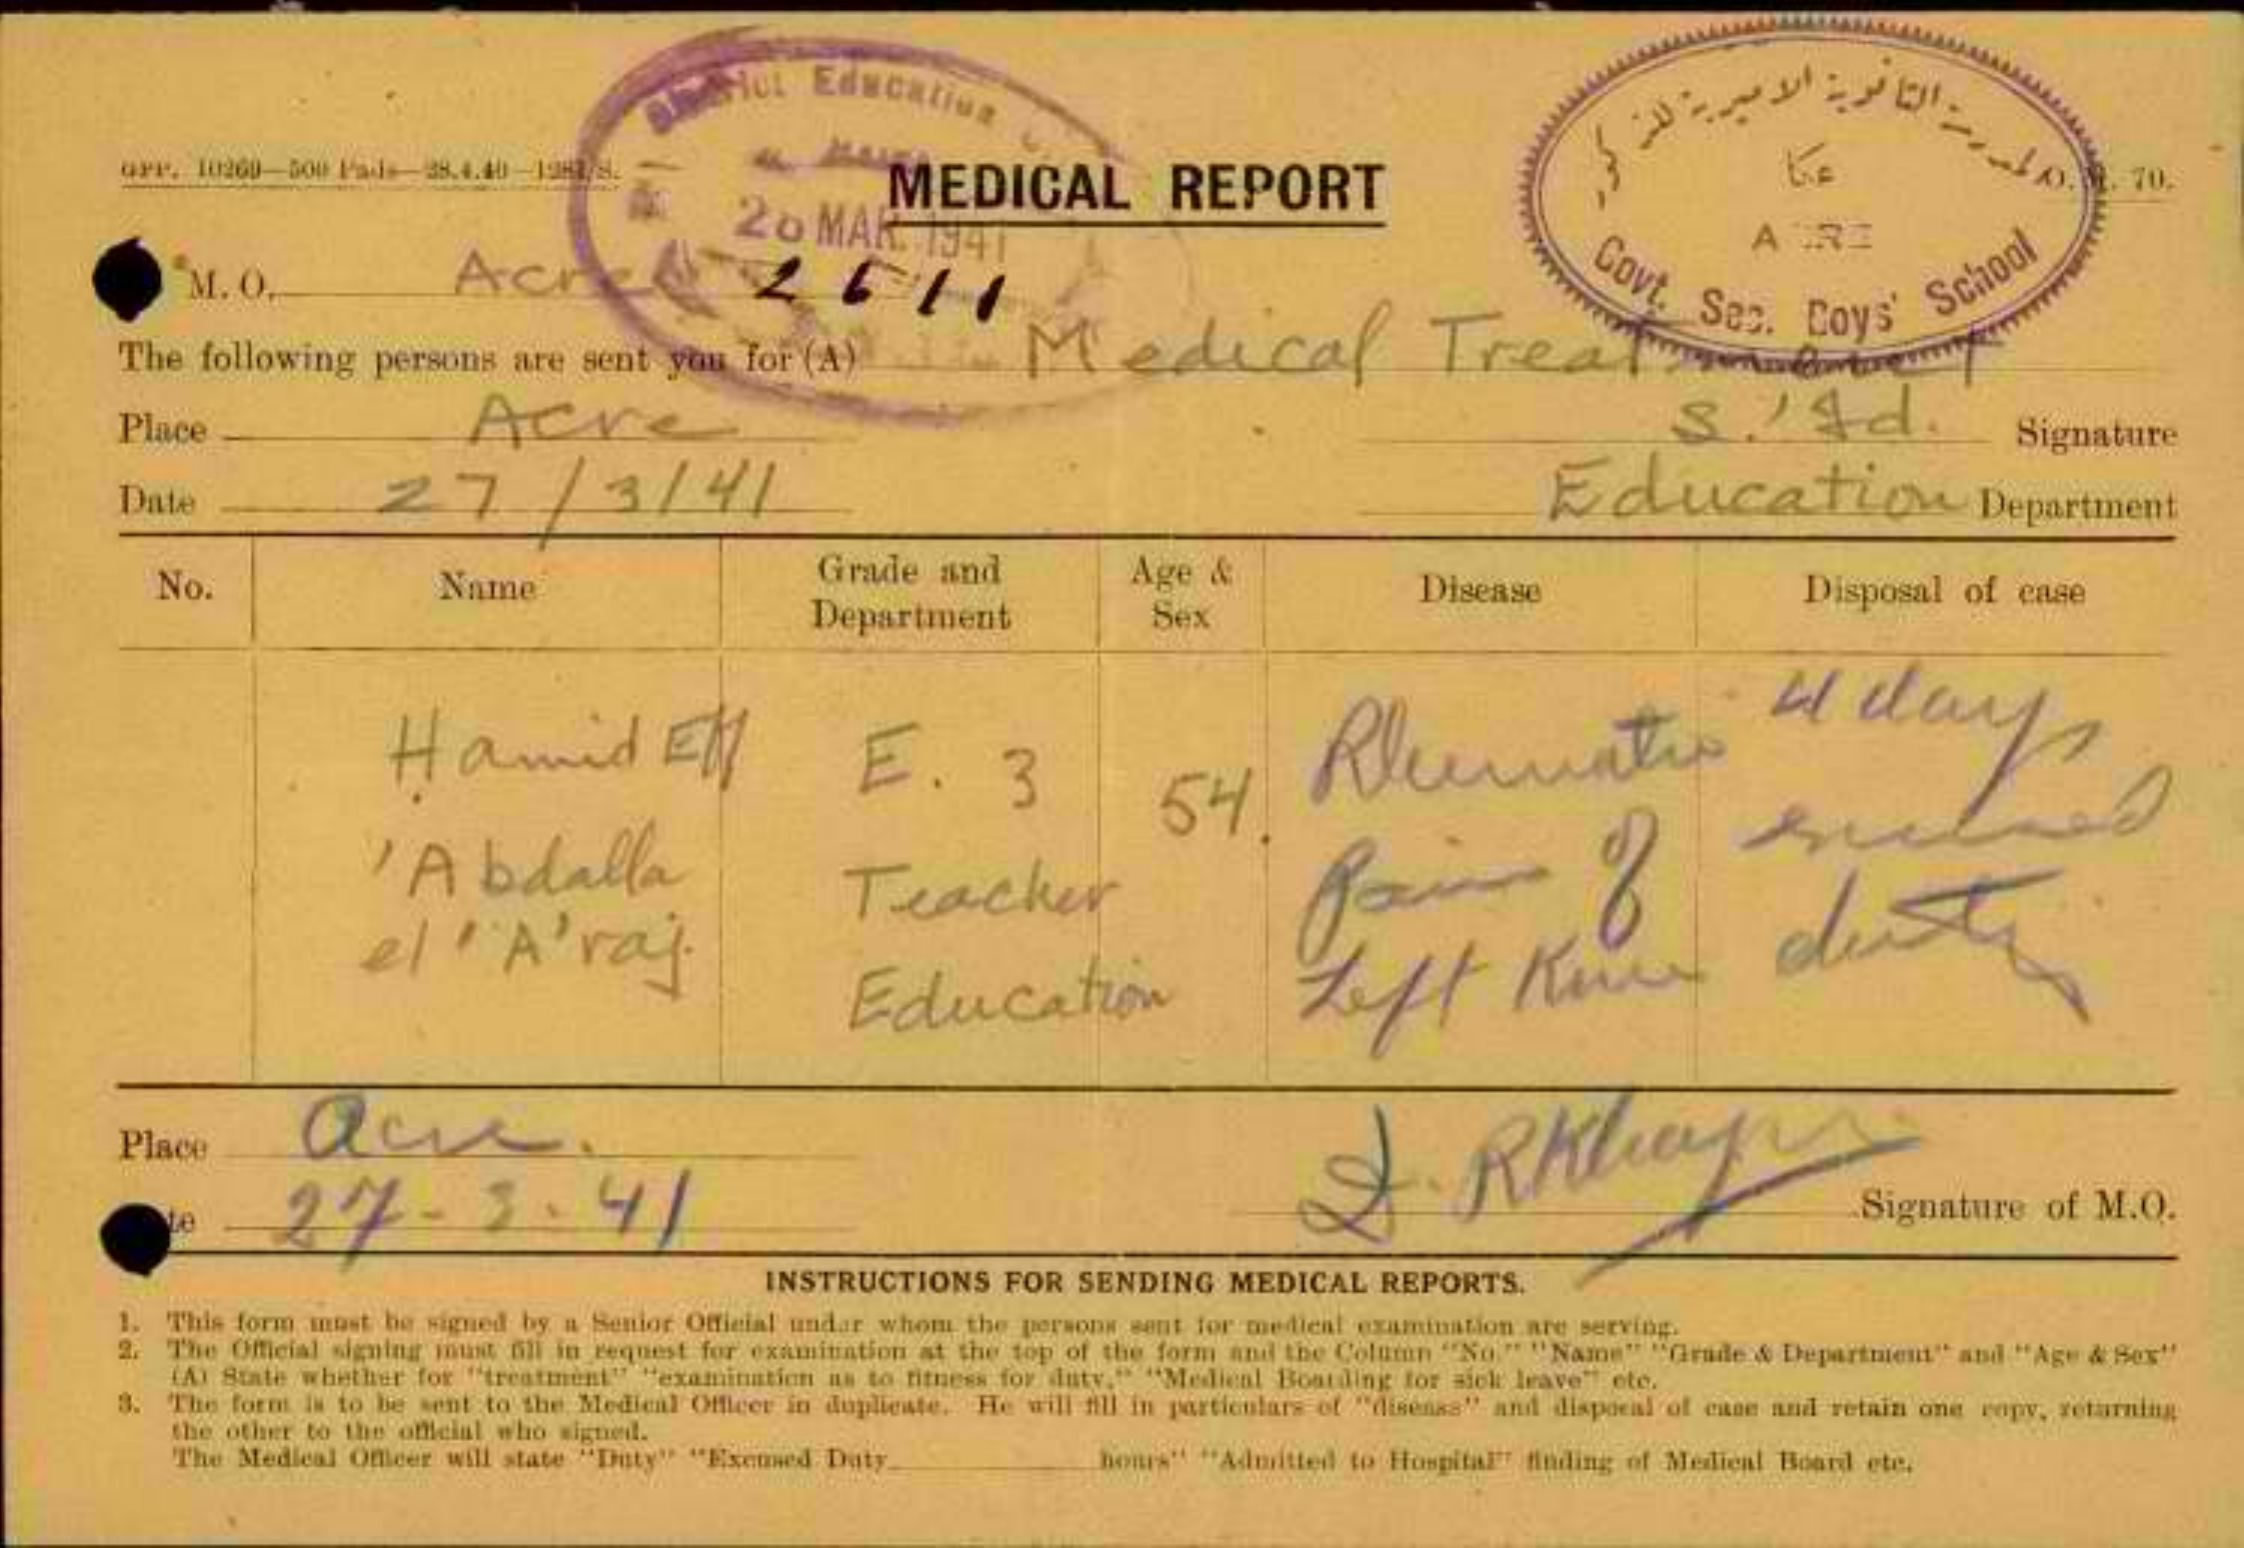 District Education
20 MAR. 1941
المدرسة الثانوية الاميرية للذكور
عكا
ACRE
Govt. Sec. Boys' School
GPP. 10269—500 Pads—28.4.40—
70.
MEDICAL REPORT
M. O. Acre 2611
The following persons are sent you for (A) Medical Treatment
Place Acre S. 'Id. Signature
Date 27/3/41 Education Department
No. Name Grade and Department Age & Sex Disease Disposal of case
Hamid Eff E. 3 54. Rheumatic 4 days
'Abdalla Teacher Pain of excused
el 'A'raj. Education Left Knee duty
Place Acre.
27-3-41 Signature of M.O.
INSTRUCTIONS FOR SENDING MEDICAL REPORTS.
1. This form must be signed by a Senior Official under whom the persons sent for medical examination are serving.
2. The Official signing must fill in request for examination at the top of the form and the Column "No." "Name" "Grade & Department" and "Age & Sex"
(A) State whether for "treatment" "examination as to fitness for duty," "Medical Boarding for sick leave" etc.
3. The form is to be sent to the Medical Officer in duplicate. He will fill in particulars of "disease" and disposal of case and retain one copy, returning
the other to the official who signed.
The Medical Officer will state "Duty" "Excused Duty____ hours" "Admitted to Hospital" finding of Medical Board etc.